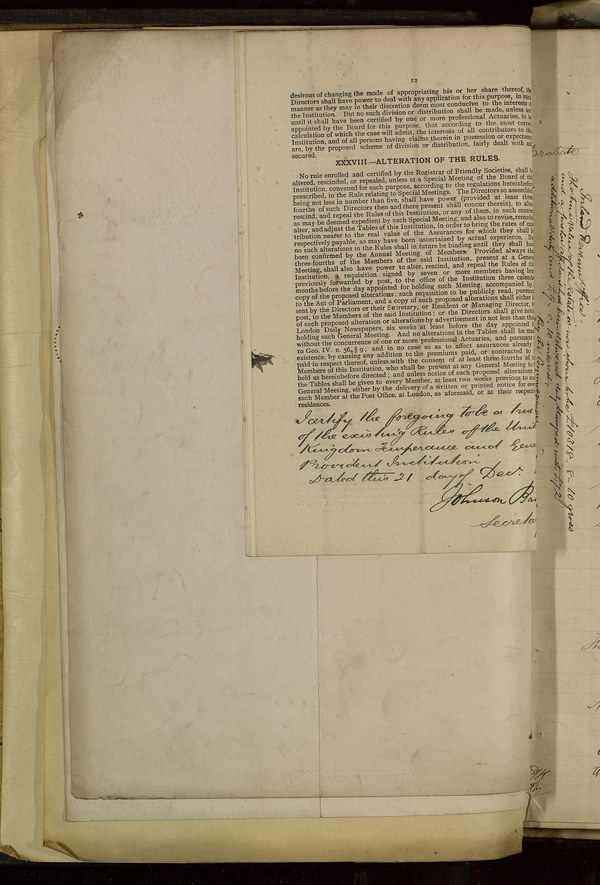 12
desirous of changing the mode of appropriating his or her share thereof, the
Directors shall have power to deal with any application for this purpose, in such
manner as they may in their discretion deem most conducive to the interests of
the Institution. But no such division or distribution shall be made, unless and
until it shall have been certified by one or more professional Actuaries, to be
appointed by the Board for this purpose, that according to the most correct
calculation of which the case will admit, the interests of all contributors to the
Institution, and of all persons having claims therein in possession or expectancy
are, by the proposed scheme of division or distribution, fairly dealt with and
secured.
XXXVIII—ALTERATION OF THE RULES.
No rule enrolled and certified by the Registrar of Friendly Societies, shall be
altered, rescinded, or repealed, unless at a Special Meeting of the Board of the
Institution, convened for such purpose, according to the regulations hereinbefore
prescribed, in the Rule relating to Special Meetings. The Directors so assembled,
being not less in number than five, shall have power (provided at least three-
fourths of such Directors then and there present shall concur therein), to alter,
rescind, and repeal the Rules of this Institution, or any of them, in such manner
as may be deemed expedient by such Special Meeting, and also to revise,
alter, and adjust the Tables of this Institution, in order to bring the rates of con-
tribution nearer to the real value of the Assurances for which they shall be
respectively payable, as may have been ascertained by actual experience. But
no such alterations in the Rules shall in future be binding until they shall have
been confirmed by the Annual Meeting of Members. Provided always that
three-fourths of the Members of the said Institution, present at a General
Meeting, shall also have power to alter, rescind, and repeal the Rules of the
Institution, a requisition signed by seven or more members having been
previously forwarded by post, to the office of the Institution three calendar
months before the day appointed for holding such Meeting, accompanied by a
copy of the proposed alterations; such requisition to be publicly read, pursuant
to the Act of Parliament, and a copy of such proposed alterations shall either be
sent by the Directors or their Secretary, or Resident or Managing Director, by
post, to the Members of the said Institution; or the Directors shall give notice
of such proposed alteration or alterations by advertisement in not less than
London Daily Newspapers, six weeks at least before the day appointed for
holding such General Meeting. And no alterations in the Tables shall be made
without the concurrence of one or more professional Actuaries, and pursuant to
10 Geo. IV. c. 56, § 9; and in no case so as to affect assurances already in
existence, by causing any addition to the premiums paid, or contracted to be
paid in respect thereof, unless with the consent of at least three-fourths of the
Members of this Institution, who shall be present at any General Meeting to be
held as hereinbefore directed; and unless notice of such proposed alterations in
the Tables shall be given to every Member, at least two weeks previous to such
General Meeting, either by the delivery of a written or printed notice for every
such Member at the Post Office, at London, as aforesaid, or at their respective
residences.
I certify the foregoing to be a true
of the existing Rules of the Unit
Kingdom Temperance and Gene
Provident Institution
Dated this 21 day of Decr.
Johnson Br
Secreta
Probate
Inland Revenue Office